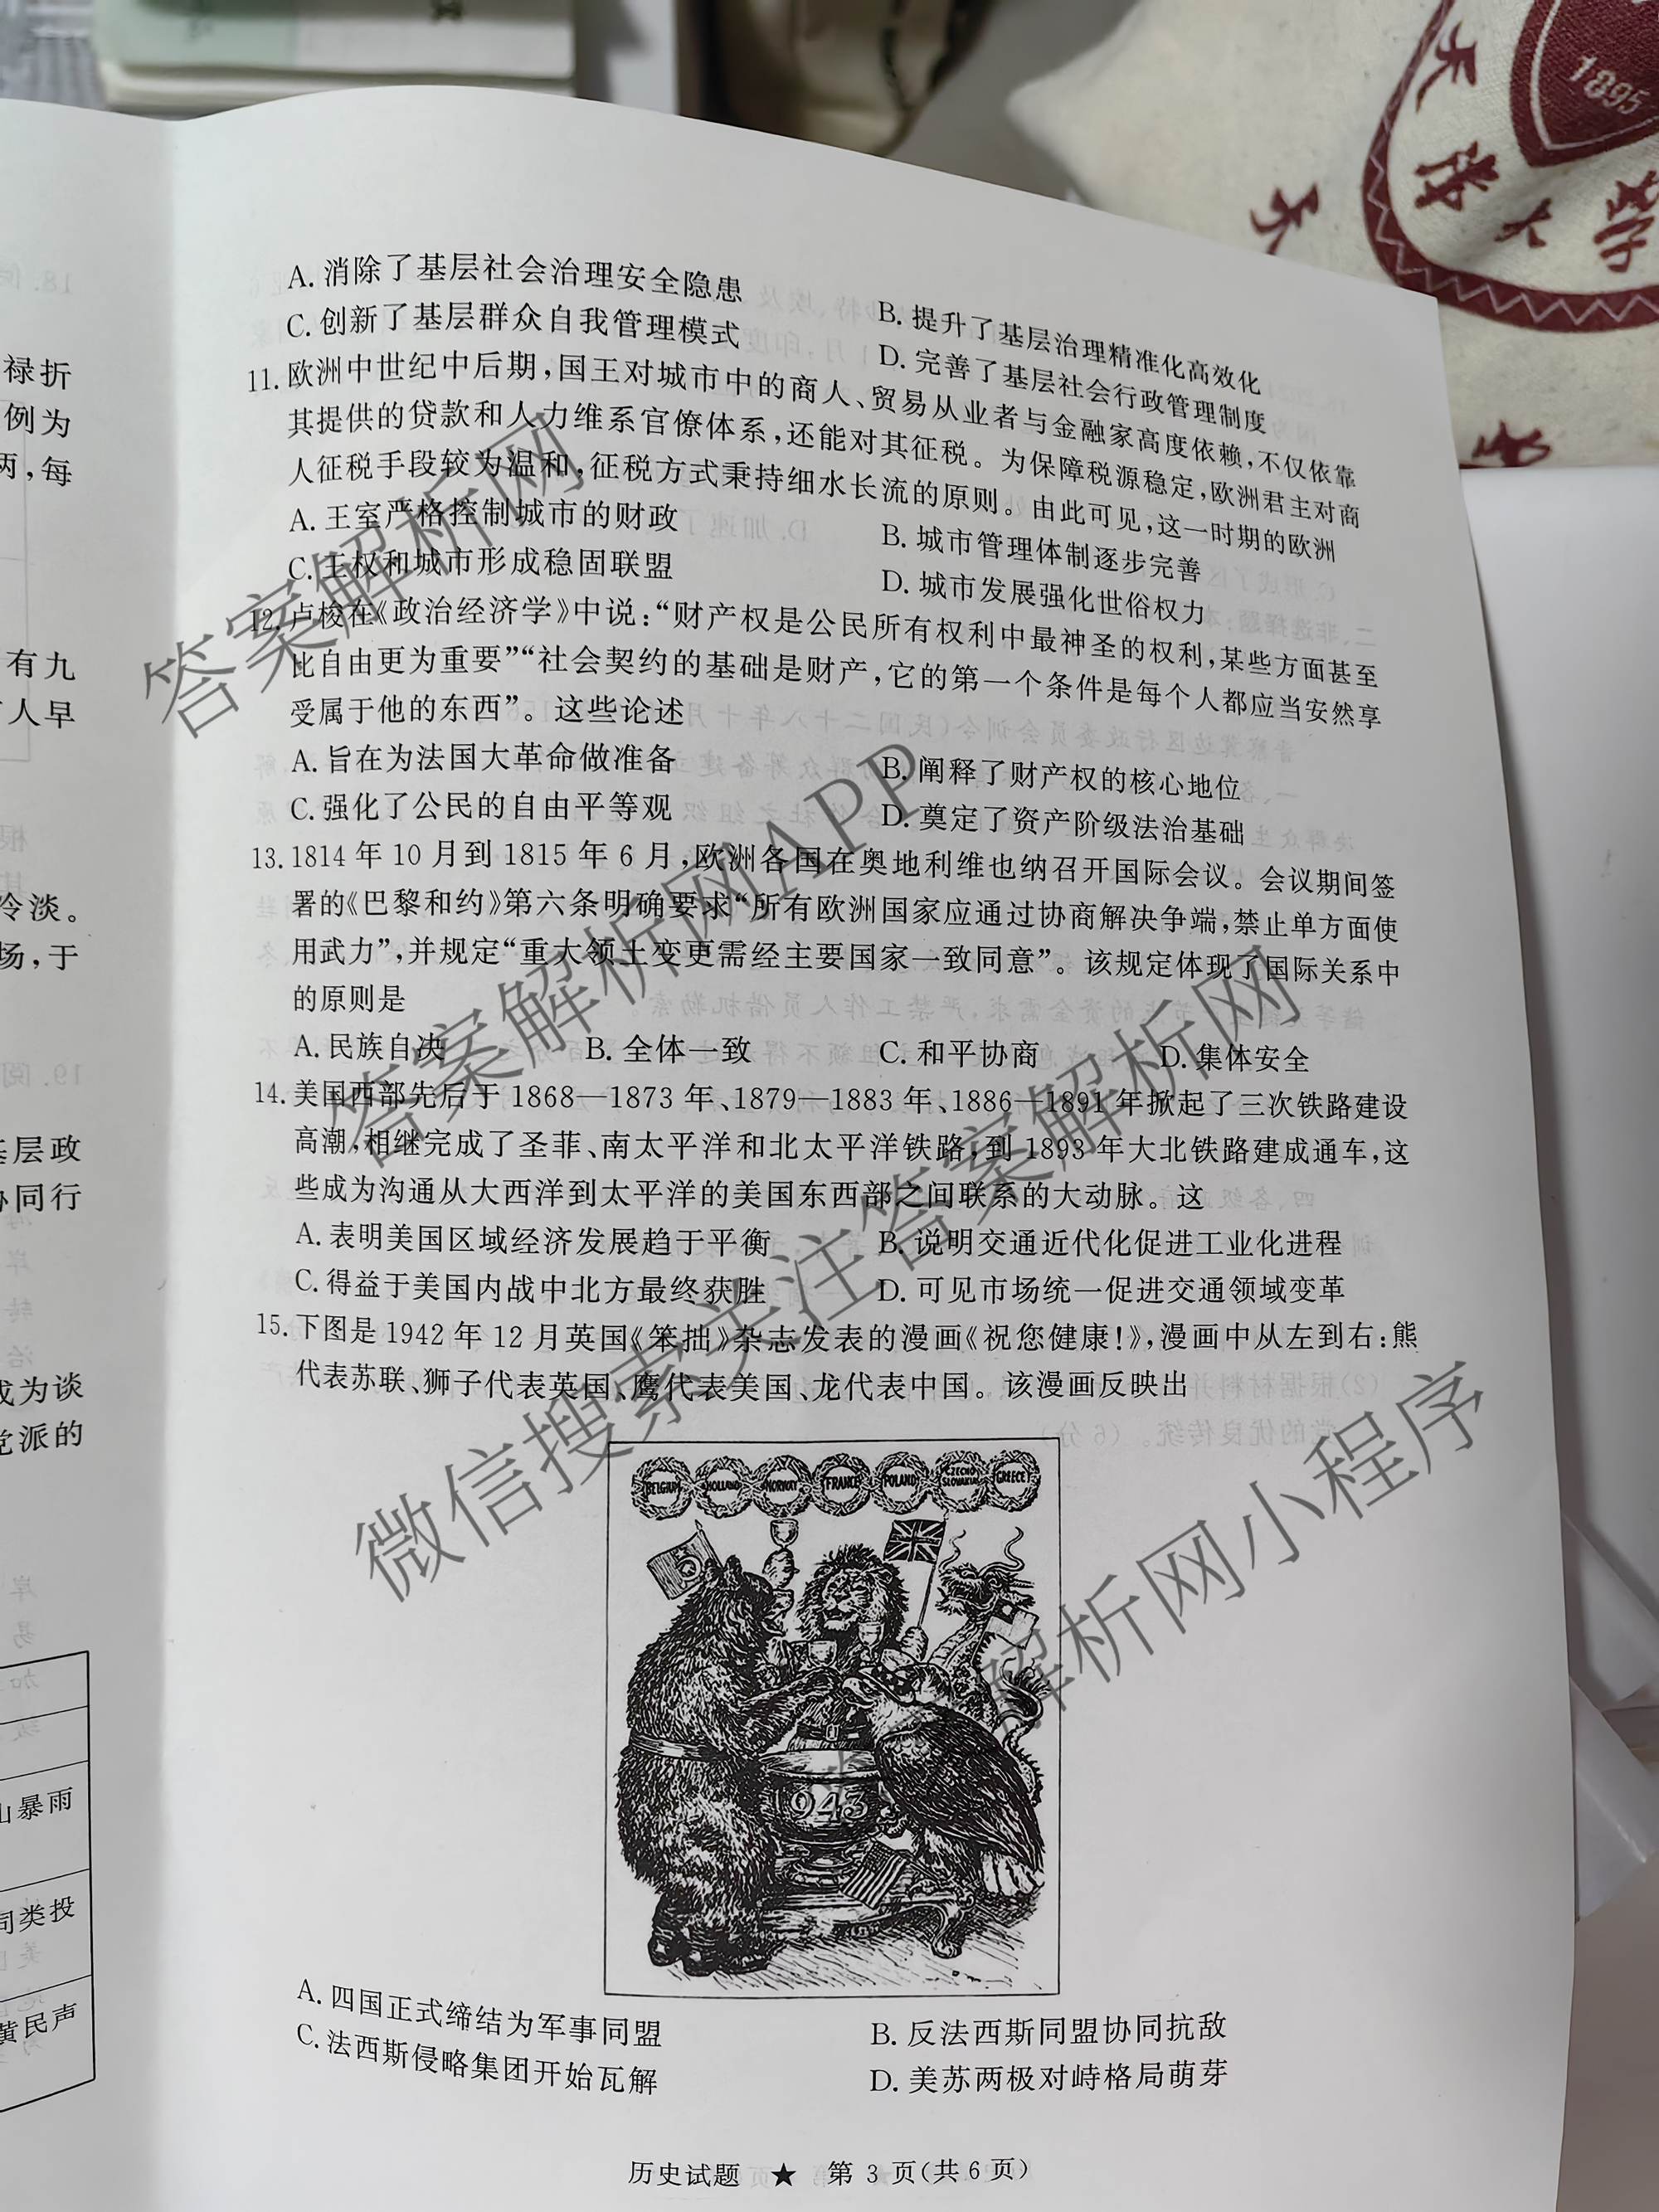 1895
天
津
大
学
禄折
例为
两,每
有九
人早
冷淡。
场,于
基层政
协同行
成为谈
党派的
山暴雨
同类投
黄民声
A.消除了基层社会治理安全隐患
B.提升了基层治理精准化高效化
C.创新了基层群众自我管理模式
D.完善了基层社会行政管理制度
11.欧洲中世纪中后期,国王对城市中的商人、贸易从业者与金融家高度依赖,不仅依靠
其提供的贷款和人力维系官僚体系,还能对其征税。为保障税源稳定,欧洲君主对商
人征税手段较为温和,征税方式秉持细水长流的原则。由此可见,这一时期的欧洲
A.王室严格控制城市的财政
B.城市管理体制逐步完善
C.王权和城市形成稳固联盟
D.城市发展强化世俗权力
12.卢梭在《政治经济学》中说:“财产权是公民所有权利中最神圣的权利,某些方面甚至
比自由更为重要”“社会契约的基础是财产,它的第一个条件是每个人都应当安然享
受属于他的东西”。这些论述
A.旨在为法国大革命做准备
B.阐释了财产权的核心地位
C.强化了公民的自由平等观
D.奠定了资产阶级法治基础
13.1814年10月到1815年6月,欧洲各国在奥地利维也纳召开国际会议。会议期间签
署的《巴黎和约》第六条明确要求“所有欧洲国家应通过协商解决争端,禁止单方面使
用武力”,并规定“重大领土变更需经主要国家一致同意”。该规定体现了国际关系中
的原则是
A.民族自决 B.全体一致 C.和平协商 D.集体安全
14.美国西部先后于1868—1873年、1879—1883年、1886—1891年掀起了三次铁路建设
高潮,相继完成了圣菲、南太平洋和北太平洋铁路,到1893年大北铁路建成通车,这
些成为沟通从大西洋到太平洋的美国东西部之间联系的大动脉。这
A.表明美国区域经济发展趋于平衡
B.说明交通近代化促进工业化进程
C.得益于美国内战中北方最终获胜
D.可见市场统一促进交通领域变革
15.下图是1942年12月英国《笨拙》杂志发表的漫画《祝您健康!》,漫画中从左到右:熊
代表苏联、狮子代表英国、鹰代表美国、龙代表中国。该漫画反映出
BELGIUM HOLLAND NORWAY FRANCE POLAND CZECHO SLOVAKIA GREECE
1943
A.四国正式缔结为军事同盟
B.反法西斯同盟协同抗敌
C.法西斯侵略集团开始瓦解
D.美苏两极对峙格局萌芽
历史试题 ★ 第3页(共6页)
答案解析网
答案解析网APP
微信搜索关注答案解析网
答案解析网小程序